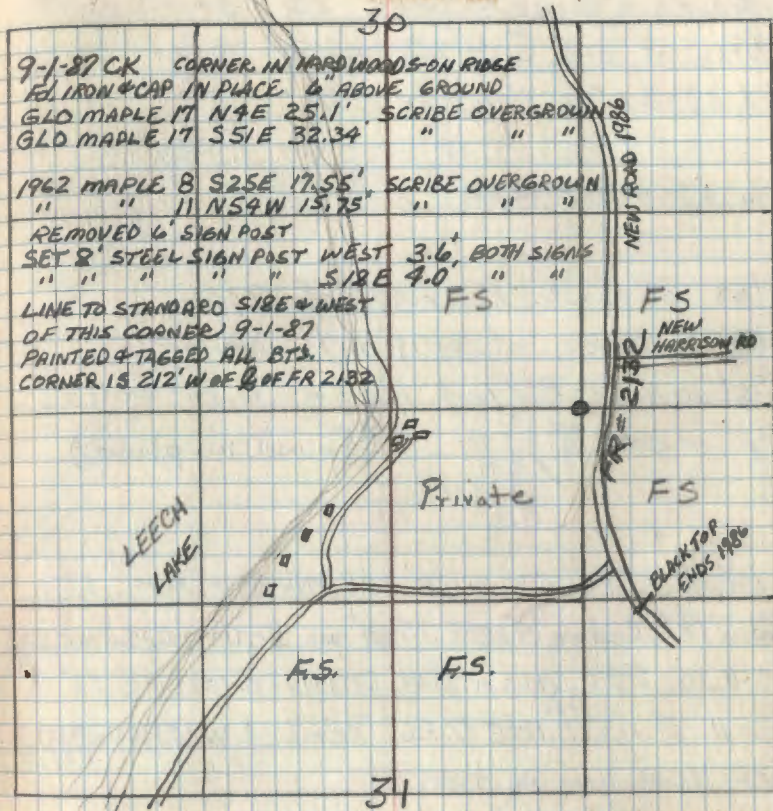 30
9-1-87 CK CORNER IN HARDWOODS-ON RIDGE
FD. IRON & CAP IN PLACE 6" ABOVE GROUND
GLO MAPLE 17 N4E 25.1' SCRIBE OVERGROWN
GLO MAPLE 17 S51E 32.34 " " "
1962 MAPLE 8 S25E 17.55' SCRIBE OVERGROWN
" " 11 N54W 15.75' " " "
REMOVED 6' SIGN POST
SET 8' STEEL SIGN POST WEST 3.6', BOTH SIGNS
" " " " " S18E 4.0' " "
LINE TO STANDARD S18E & WEST
OF THIS CORNER 9-1-87
PAINTED & TAGGED ALL BTS.
CORNER IS 212' W OF ℄ OF FR 2132
NEW ROAD 1986
FS
FS
NEW
HARRISON RD
FR = 2132
Private
FS
LEECH
LAKE
BLACKTOP
ENDS 1986
F.S.
F.S.
31